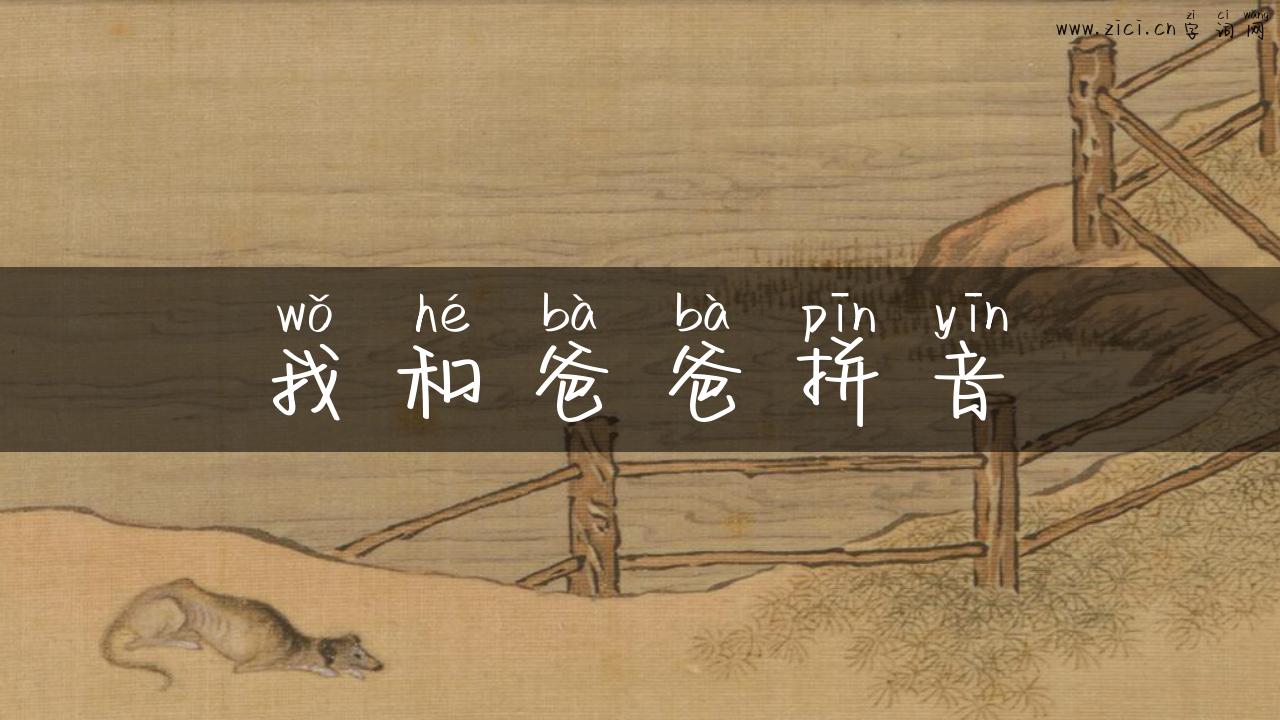 zì cí wǎng
www.zici.cn 字词网
wǒ hé bà bà pīn yīn
我和爸爸拼音